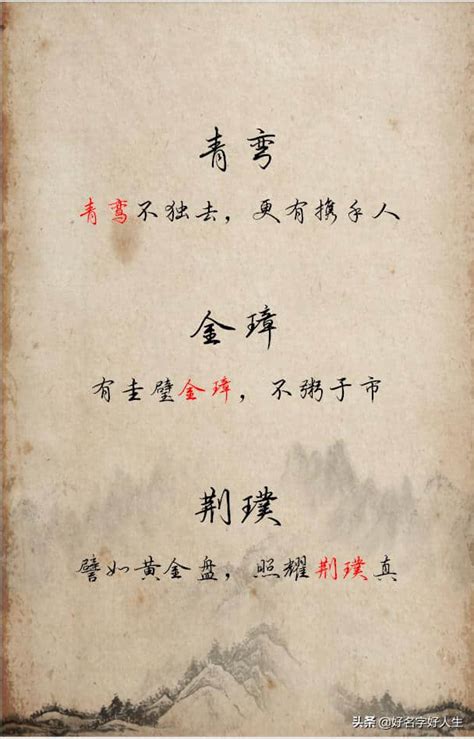 青弯
青鸾不独去，更有携手人
金璋
有圭璧金璋，不粥于市
荆璞
譬如黄金盘，照耀荆璞真
头条 @好名字好人生